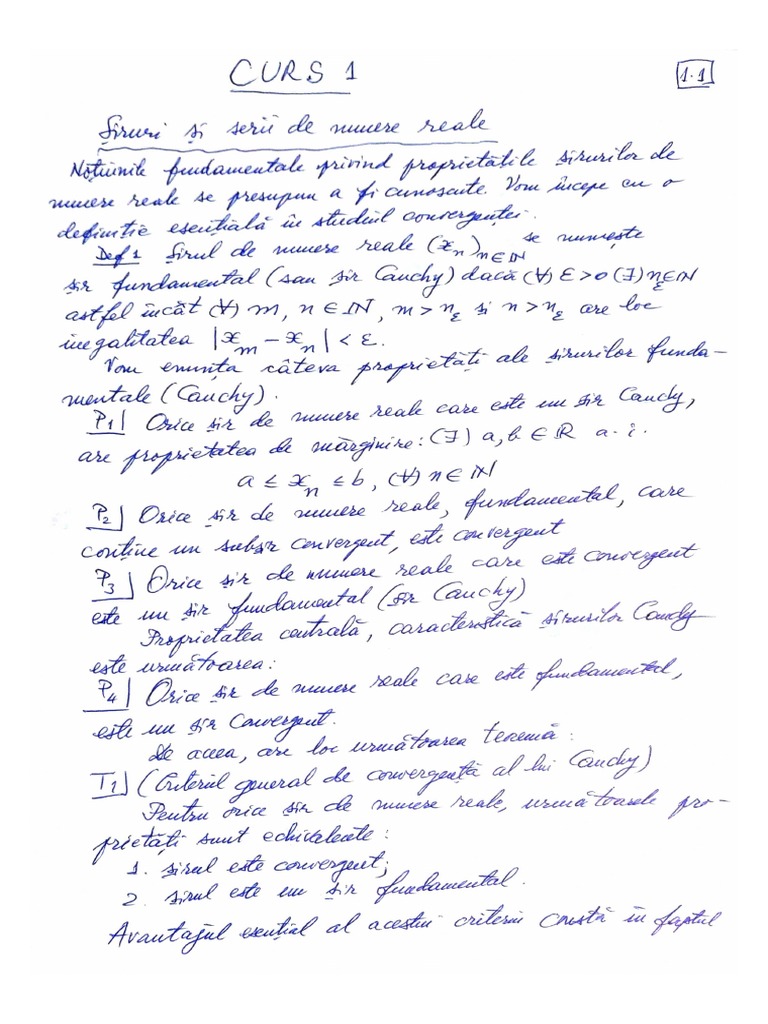 CURS 1
1.1
Șiruri și serii de numere reale
Noțiunile fundamentale privind proprietățile șirurilor de
numere reale se presupun a fi cunoscute. Vom începe cu o
definiție esențială în studiul convergenței.
Def 1 Șirul de numere reale (x_n)_{n∈ℕ} se numește
șir fundamental (sau șir Cauchy) dacă (∀) ε>0 (∃) n_ε∈ℕ
astfel încât (∀) m, n ∈ ℕ, m > n_ε și n > n_ε are loc
inegalitatea |x_m − x_n| < ε.
Vom enunța câteva proprietăți ale șirurilor funda-
mentale (Cauchy).
P1 Orice șir de numere reale care este un șir Cauchy,
are proprietatea de mărginire: (∃) a, b ∈ ℝ a. î.
a ≤ x_n ≤ b, (∀) n ∈ ℕ
P2 Orice șir de numere reale, fundamental, care
conține un subșir convergent, este convergent
P3 Orice șir de numere reale care este convergent
este un șir fundamental (șir Cauchy)
Proprietatea centrală, caracteristică șirurilor Cauchy
este următoarea:
P4 Orice șir de numere reale care este fundamental,
este un șir convergent.
De aceea, are loc următoarea teoremă:
T1 (Criteriul general de convergență al lui Cauchy)
Pentru orice șir de numere reale, următoarele pro-
prietăți sunt echivalente:
1. șirul este convergent;
2. șirul este un șir fundamental.
Avantajul esențial al acestui criteriu constă în faptul